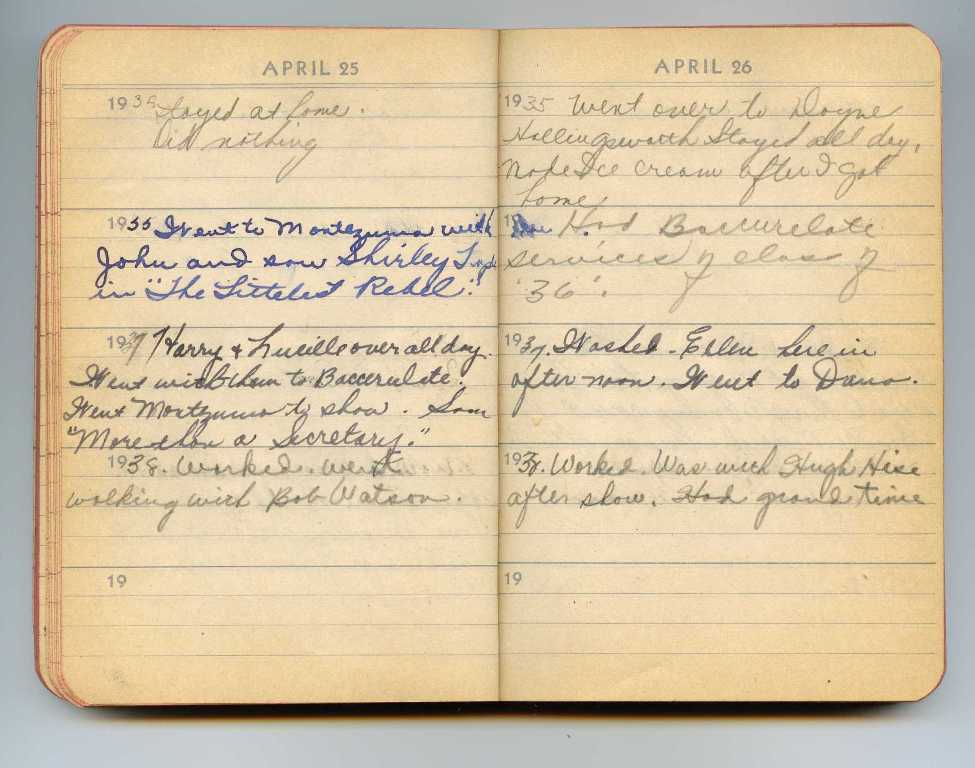 APRIL 25
1935 Stayed at home.
Did nothing
1935 Went to Montezuma with
John and saw Shirley
in "The Littelest Rebel."
1937 Harry & Lucille over all day.
Went with them to Baccerulate.
Went Montzuma to show. Saw
"More than a Secretary."
1938. Worked. went
walking with Bob Watson.
19
APRIL 26
1935 Went over to Doyne
Hollingsworth Stayed all day,
Made Ice cream after I got
home
Had Baccurelate
services of class of
'36'.
1937. Washed - Ellen here in
after noon. Went to Dana.
1938. Worked. Was with Hugh Hise
after show. Had grand time
19